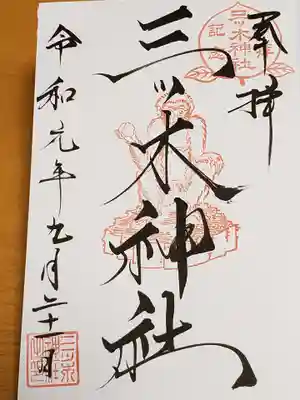 奉拝
三ッ木神社
令和元年九月二十一日
三ッ木神社